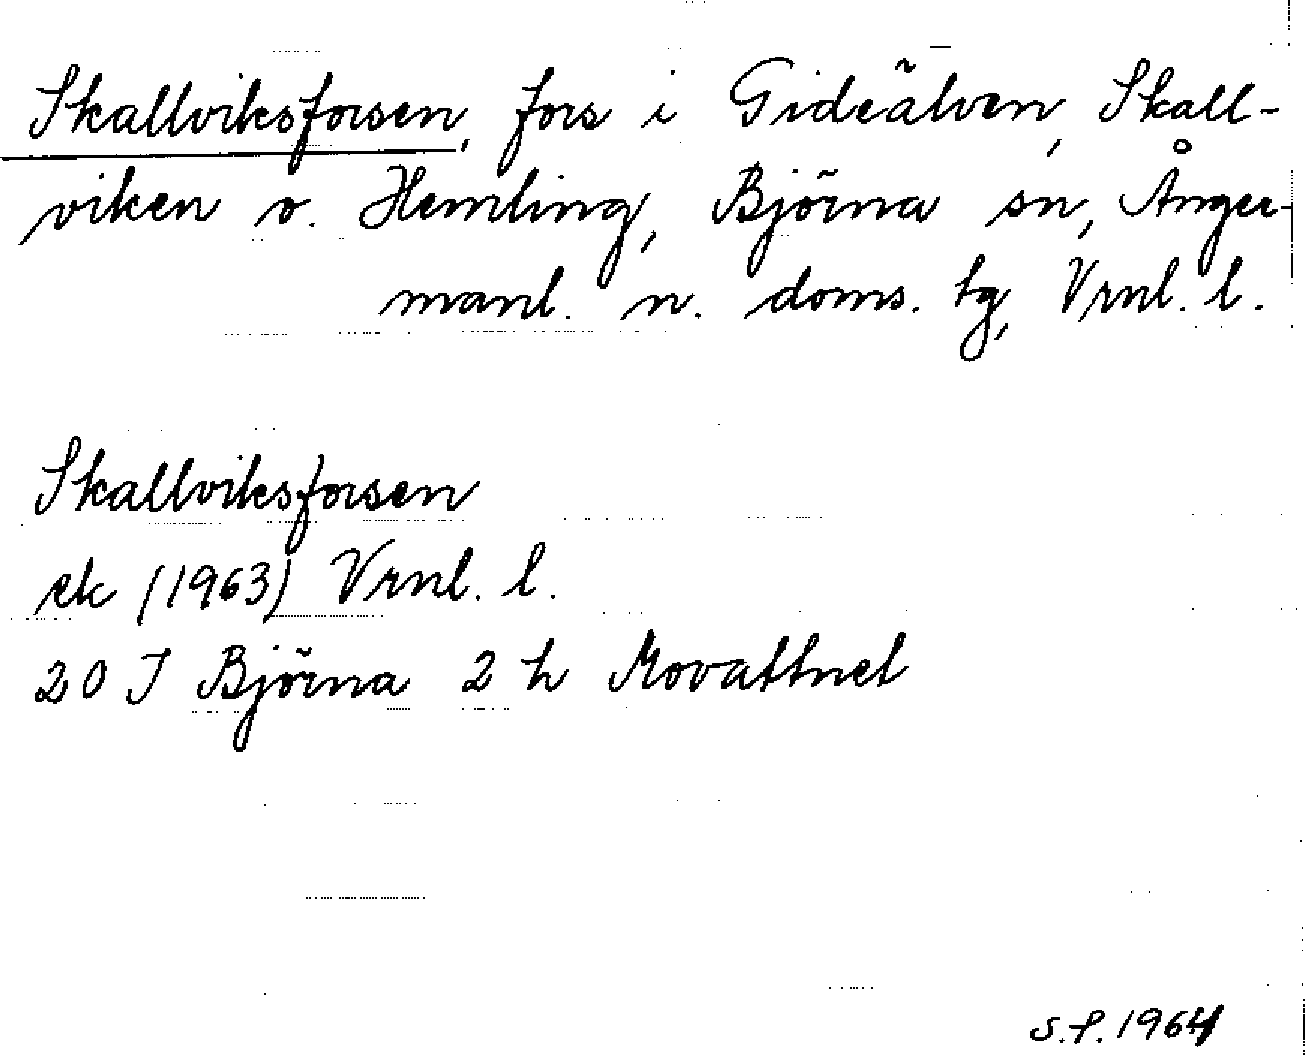 Skallviksforsen, fors i Gideälven, Skall-
viken o. Hemling, Björna sn, Ånger-
manl. n. doms. tg, Vrnl. l.
Skallviksforsen
ek (1963) Vrnl. l.
20 I Björna 2 h Movattnet
S.P. 1964